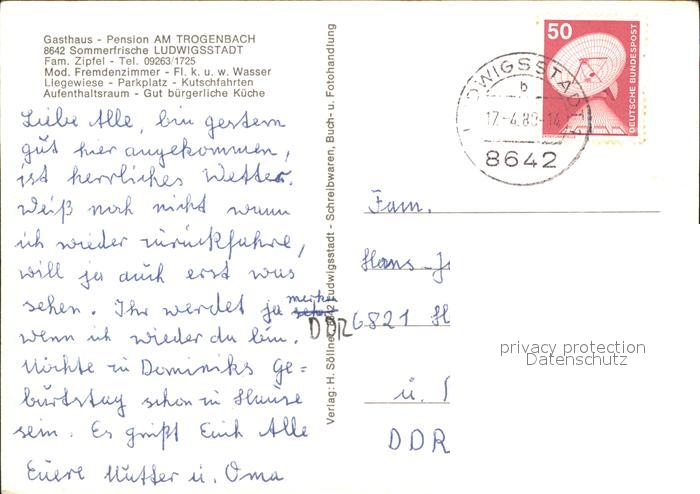 Gasthaus - Pension AM TROGENBACH
8642 Sommerfrische LUDWIGSSTADT
Fam. Zipfel - Tel. 09263/1725
Mod. Fremdenzimmer - Fl. k. u. w. Wasser
Liegewiese - Parkplatz - Kutschfahrten
Aufenthaltsraum - Gut bürgerliche Küche
Liebe Alle, bin gestern
gut hier angekommen,
ist herrliches Wetter.
Weiß noch nicht wann
ich wieder zurückfahre,
will ja auch erst was
sehen. Ihr werdet ja merken
wenn ich wieder da bin.
Möchte in Dominiks Ge=
burtstag schon in Hause
sein. Es grüßt Euch Alle
Euere Mutter u. Oma
Verlag: H. Söllner, 8642 Ludwigsstadt - Schreibwaren, Buch- u. Fotohandlung
50
DEUTSCHE BUNDESPOST
LUDWIGSSTADT 1
b
17.-4.80-14
8642
Fam.
Hans-J
DDR 6821
u.
DDR
privacy protection
Datenschutz